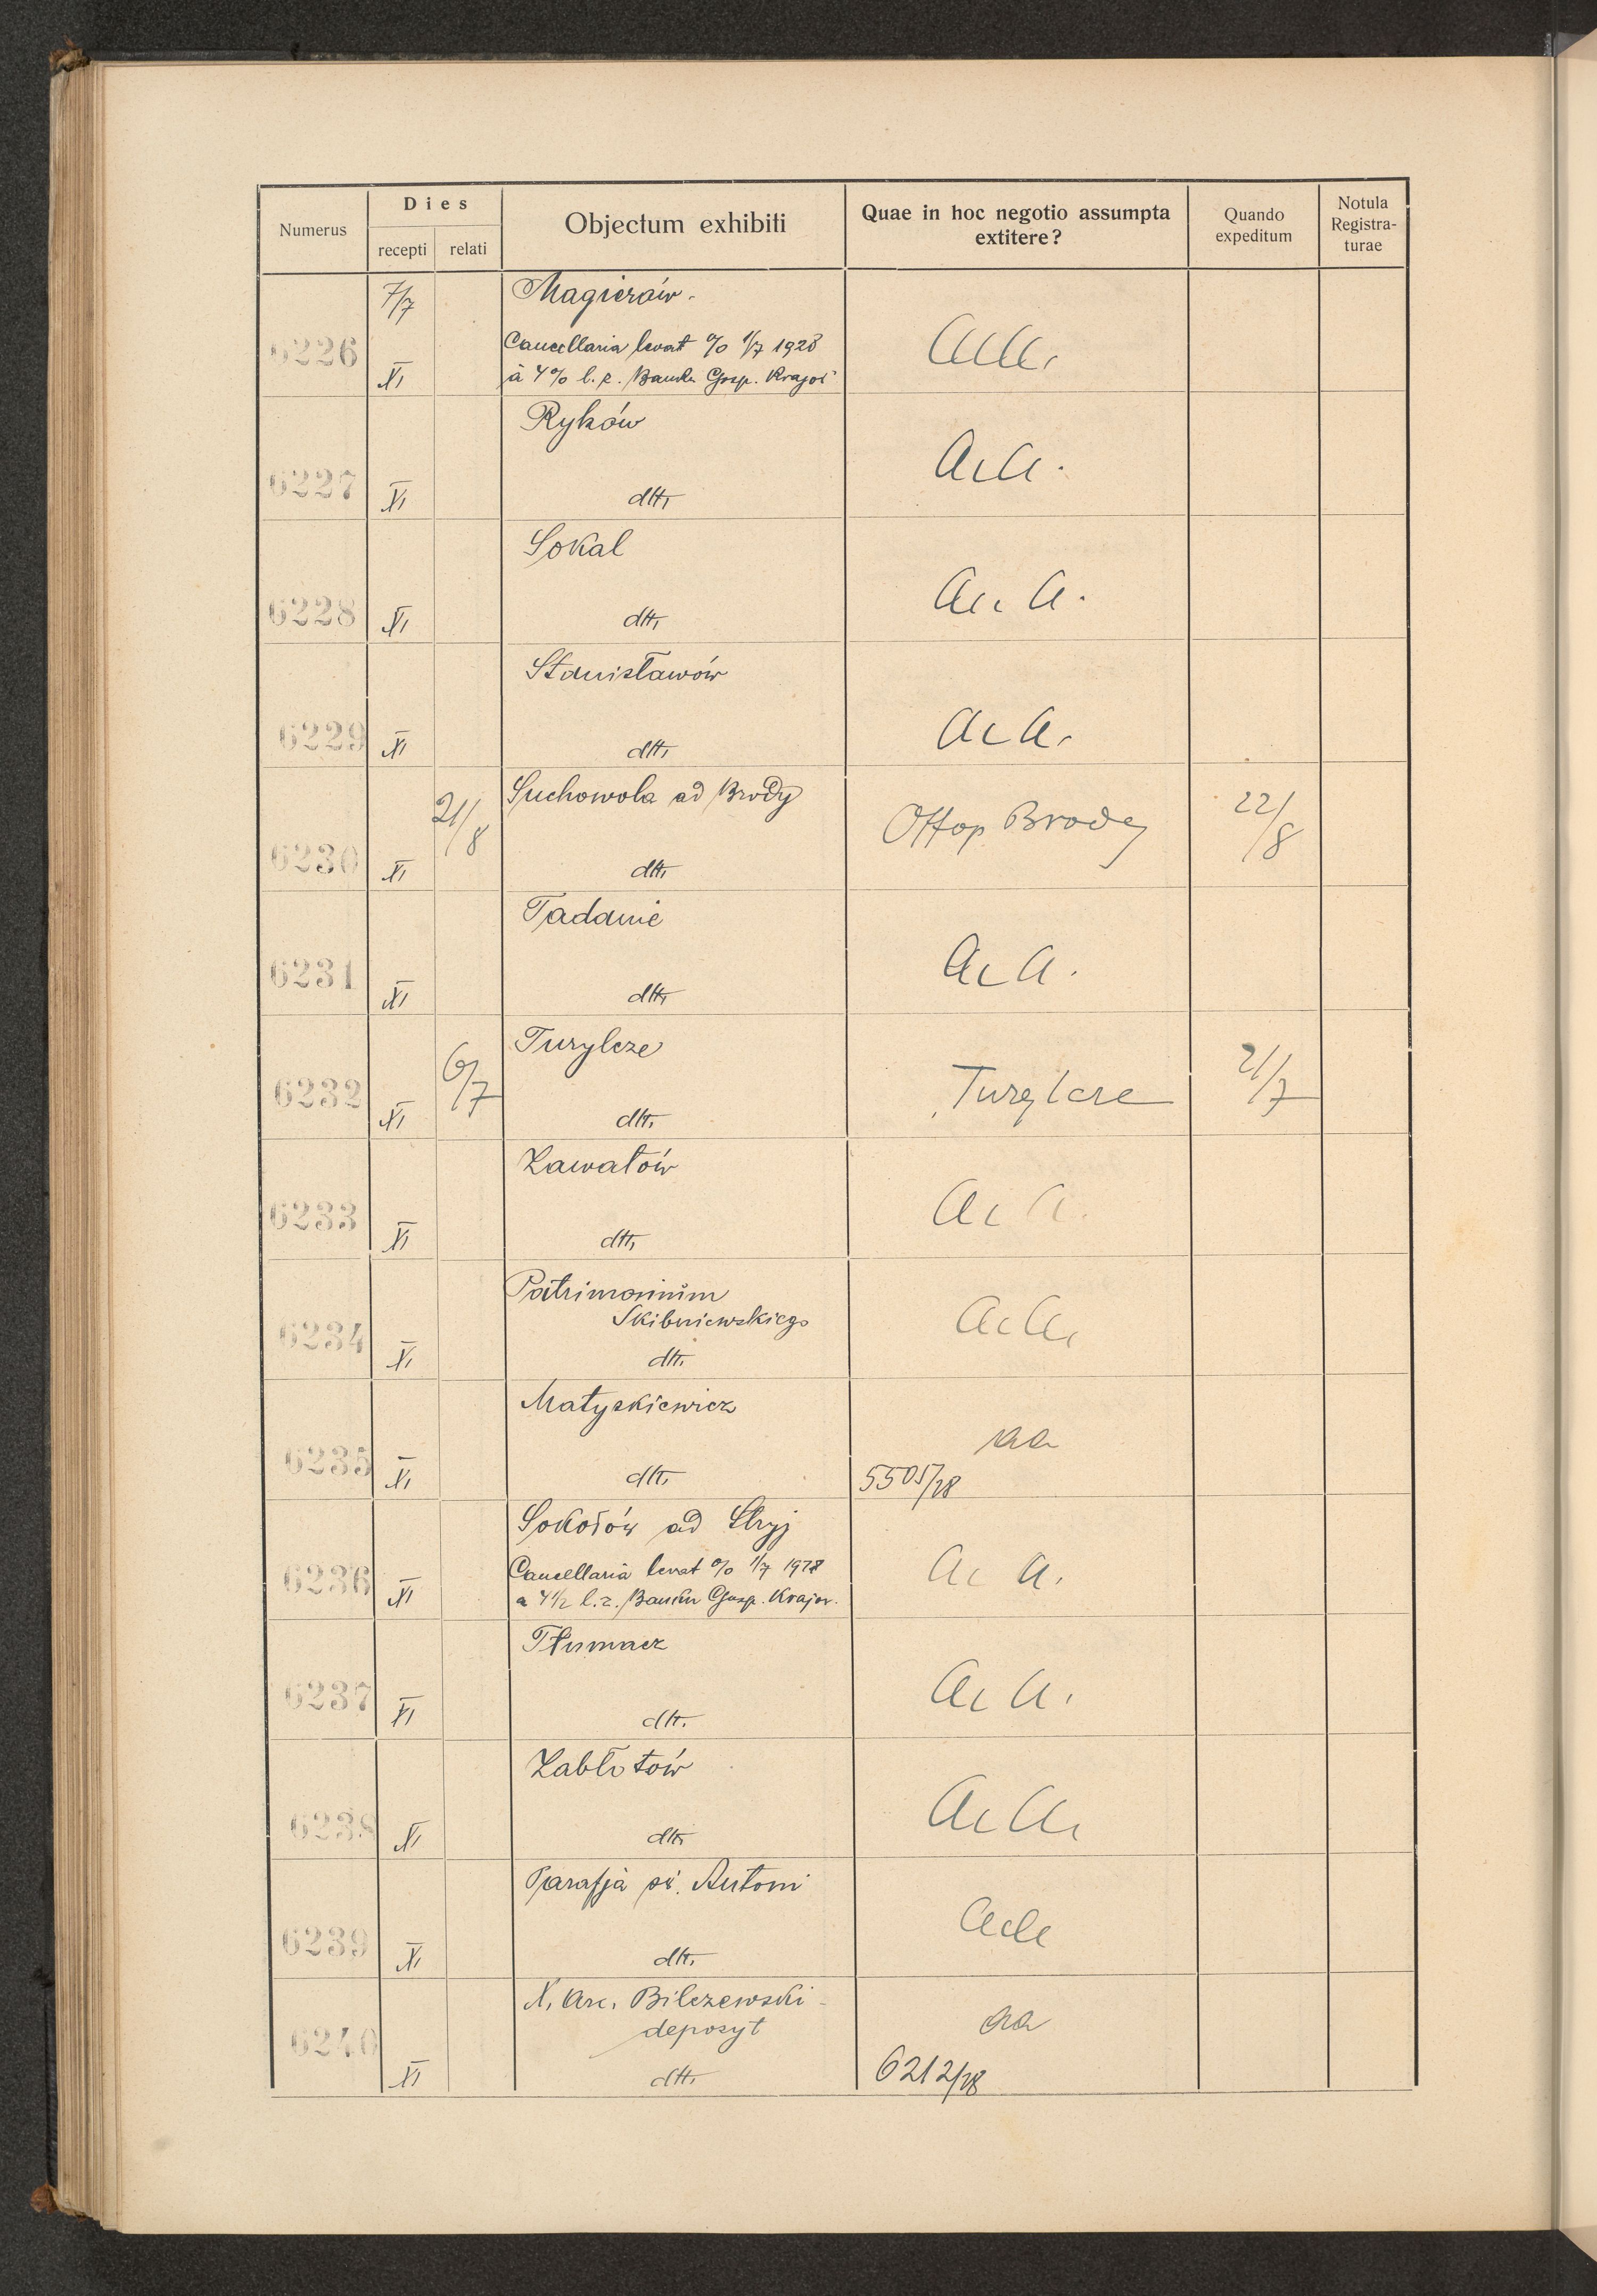 Numerus
Dies
recepti relati
Objectum exhibiti
Quae in hoc negotio assumpta
extitere?
Quando
expeditum
Notula
Registra-
turae
7/7 Magierów.
6226 XI Cancellaria levat % 1/7 1928
à 4% l. z. Banku Gosp. Krajow
Ryków
6227 XI dtt, A. A.
Sokal
6228 XI dtt, A. A.
Stanisławów
6229 XI dtt, A. A.
21/8 Suchowola ad Brody Offop Brody 22/8
6230 XI dtt,
Tadanie
6231 XI dtt, A. A.
6/7 Turylcze 21/7
6232 XI dtt, Turylcze
Zawałów
6233 XI dtt, A. A.
Patrimonium
Skibniewskiego
6234 XI dtt. A. A.
Matyskiewicz
aa
6235 XI dtt. 5505/28
Sokołów ad Stryj
6236 XI Cancellaria levat % 1/7 1928 A. A.
a 4½ l. z. Banku Gosp. Krajow.
Tłumacz
6237 XI dtt. A. A.
Zabłotów
6238 XI dtt. A. A.
Parafja św. Antoni
6239 XI dtt.
X. Arc. Bilczewski -
deposyt aa
6240 XI dtt. 6212/28